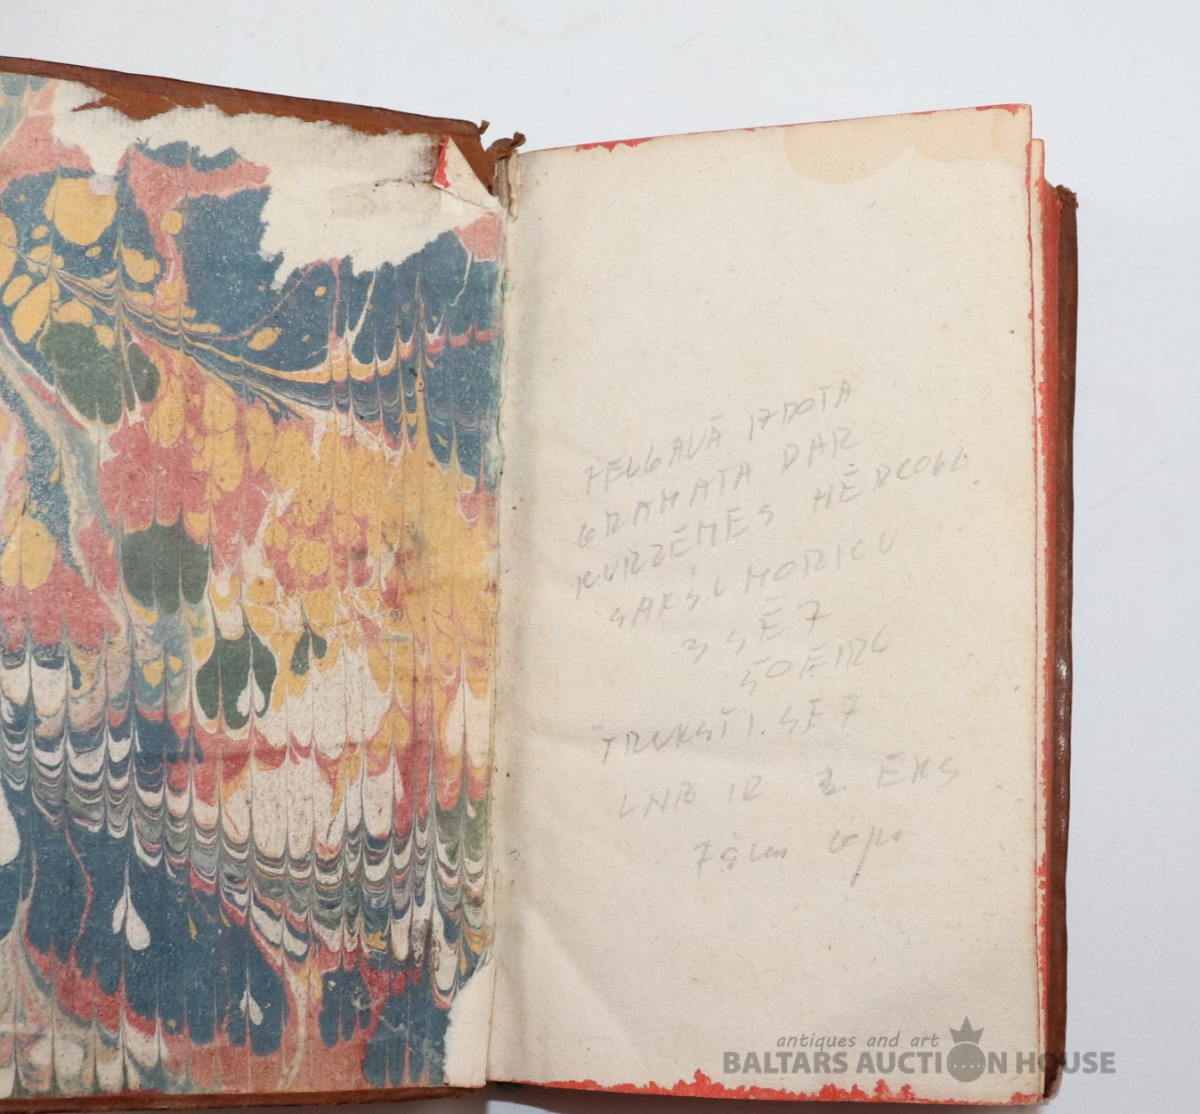 JELGAVĀ IZDOTA
GRAMATA PAR
KURZEMES HERCOGU
SAKŠU MORICU
3 SĒJ
SOĒJRU
TRŪKST 1. SĒJ
LNB IR 2 EKS
antiques and art
BALTARS AUCTION HOUSE